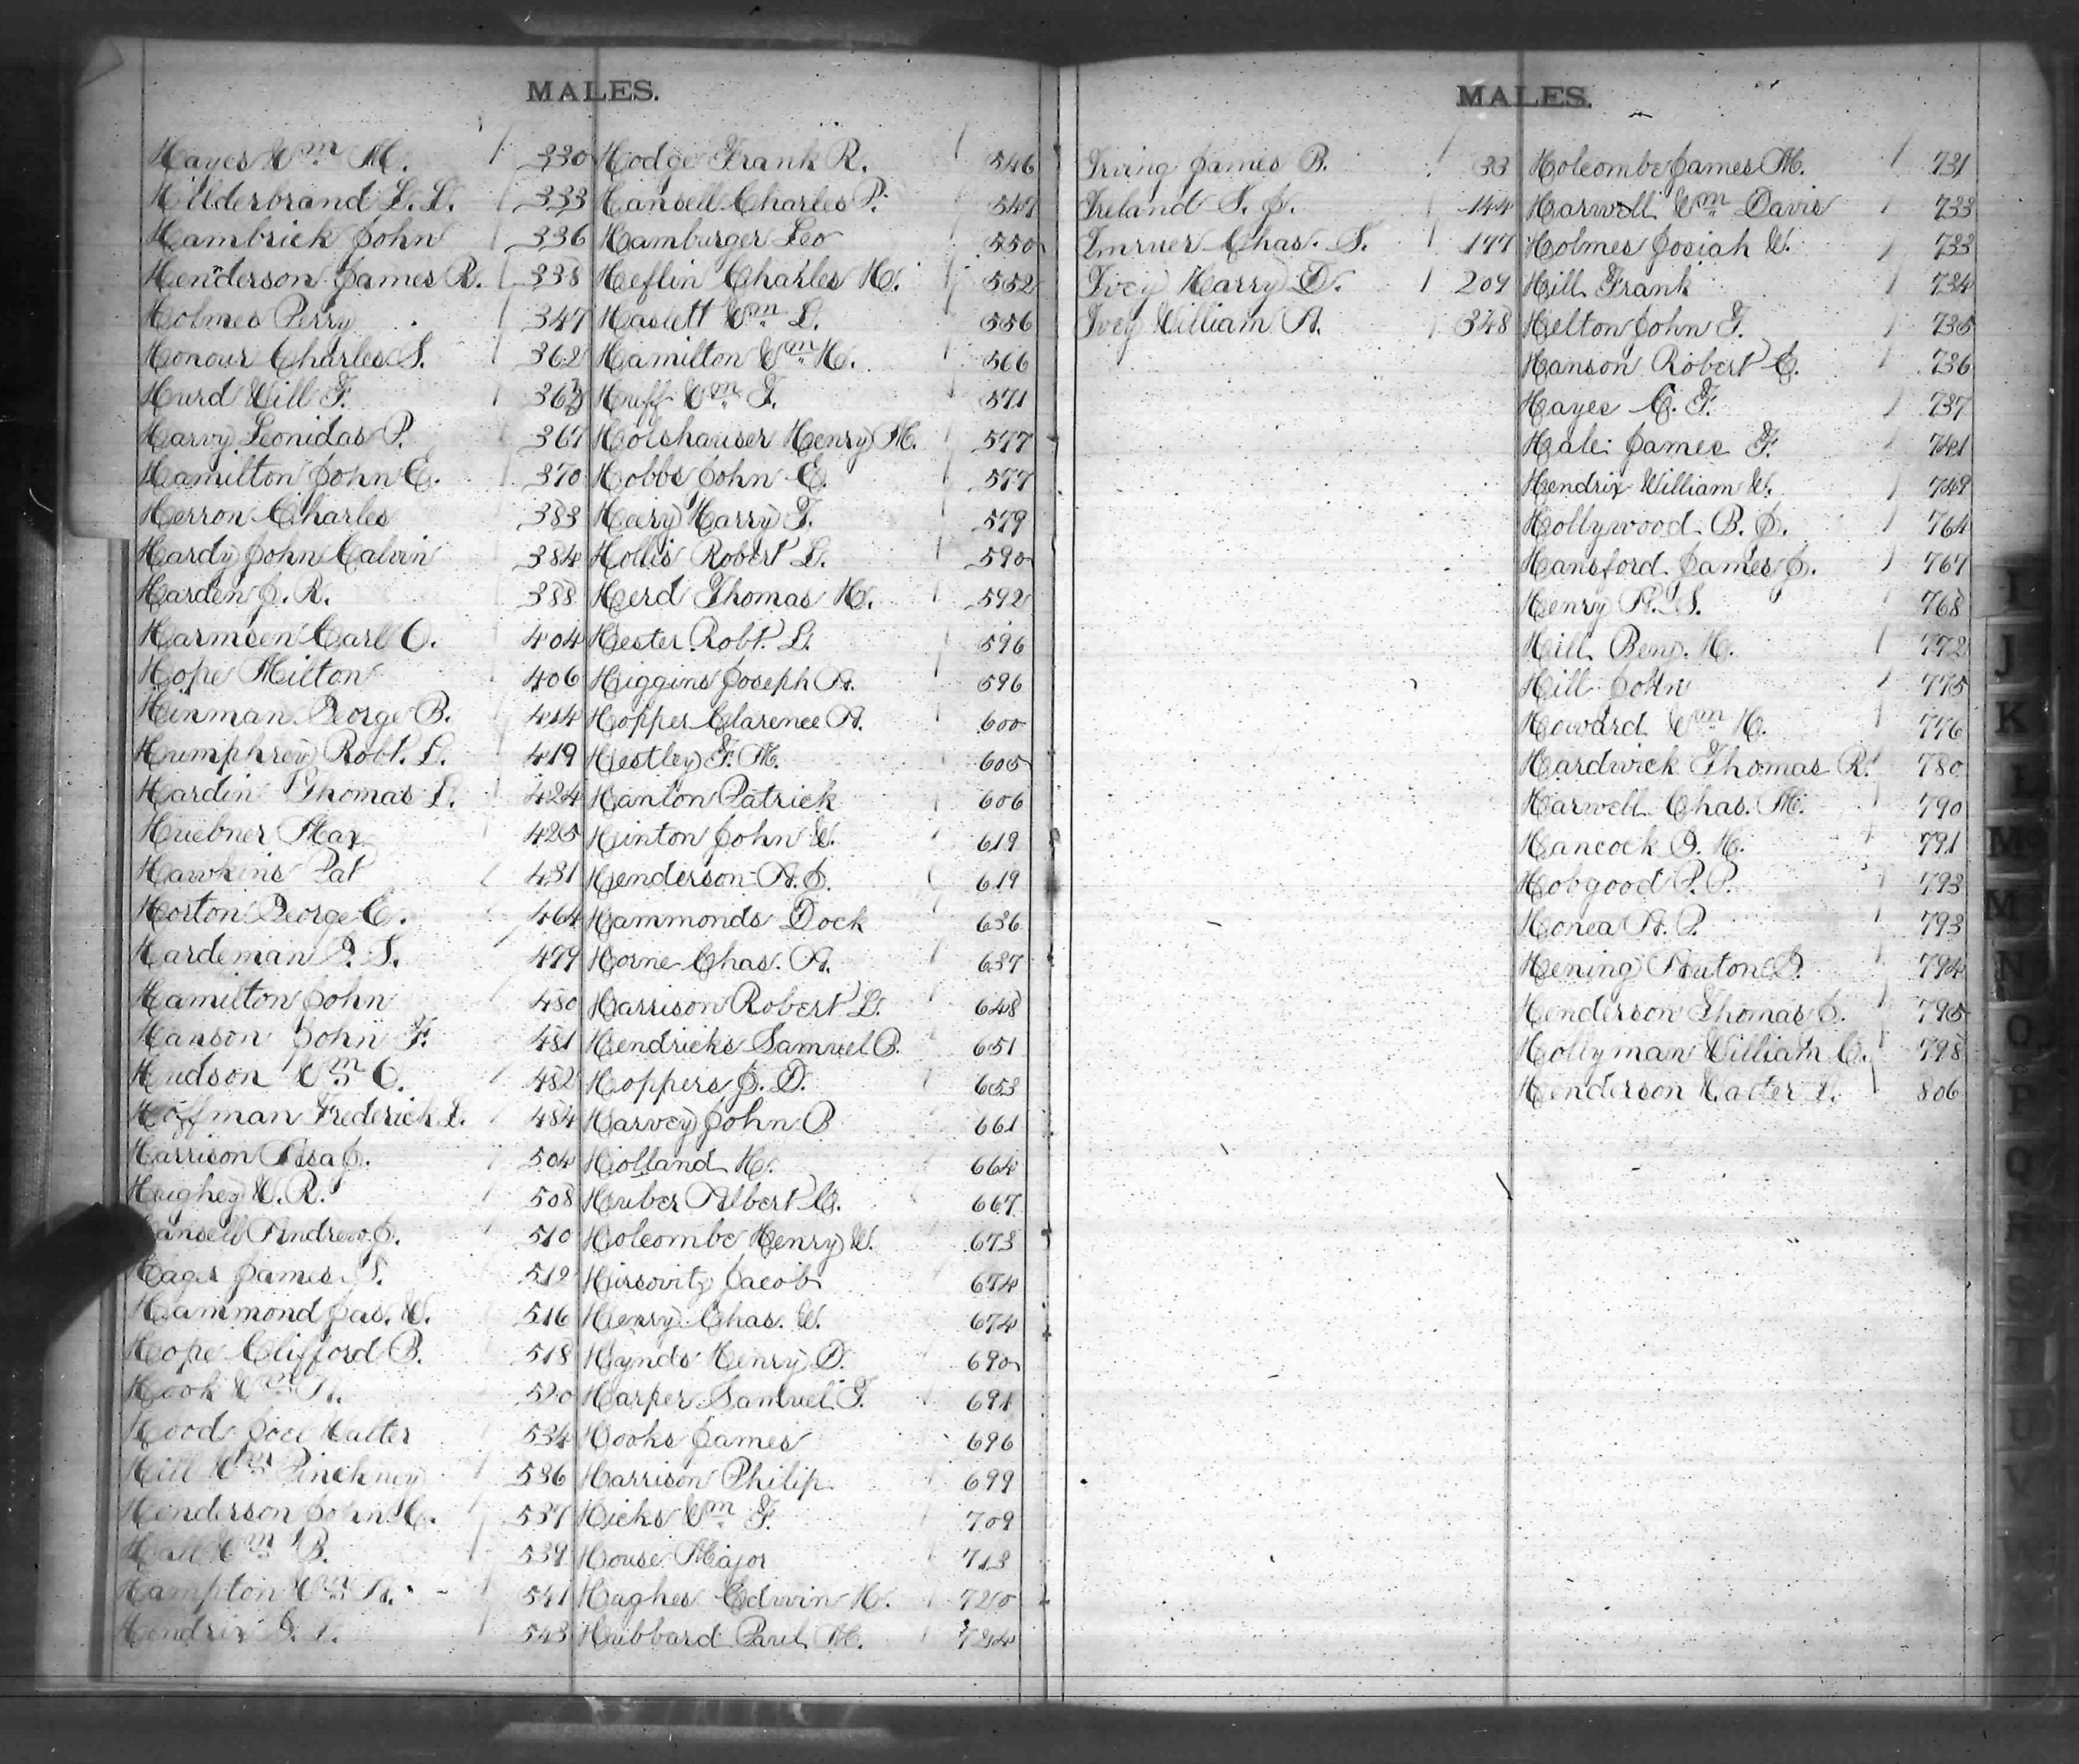 MALES.
Hayes Wm. M. 330
Hilderbrand L. L. 333
Hambrick John 336
Henderson James R. 338
Holmes Perry 347
Honour Charles S. 362
Hurd Will F.
Harvy Leonidas P. 367
Hamilton John E. 370
Herron Charles 383
Hardy John Calvin 384
Harden J. R. 388
Harmsen Carl O. 404
Hope Milton 406
Hinman George B. 414
Humphrey Robt. L. 419
Hardin Thomas L. 424
Huebner Max 425
Hawkins Pat 431
Horton George C. 464
Hardeman S. 479
Hamilton John 480
Hanson John F. 481
Hudson Wm. O. 482
Hoffman Frederick L. 484
Harrison Asa J. 504
Hughey W. R. 508
Andrew J. 510
Hager James 512
Hammond Jas. W. 516
Hope Clifford B. 518
Hook Wm. A. 520
Hood Joel Walter 534
Hill Wm. Pinckney 536
Henderson John C. 537
Hall Wm. B. 539
Hampton Wm. A. 541
Hendrix 543
Hodge Frank R. 546
Hansell Charles P. 547
Hamburger Leo 550
Heflin Charles H. 552
Haslett Wm. L. 556
Hamilton Wm. H. 566
Huff Wm. F. 571
Holshauser Henry M. 577
Hobbs John E. 577
Heery Harry F. 579
Hollis Robert L. 590
Herd Thomas H. 592
Hester Robt. L. 596
Higgins Joseph A. 596
Hopper Clarence A. 600
Hestley F. M. 605
Hanlon Patrick 606
Hinton John W. 619
Henderson A. J. 619
Hammonds Dock 636
Horne Chas. A. 637
Harrison Robert L. 648
Hendricks Samuel B. 651
Hoppers J. D. 653
Harvey John B 661
Holland H. 664
Huber Albert C. 667
Holcombe Henry W. 673
Hirsovitz Jacob 674
Henry Chas. W. 674
Hynds Henry D. 690
Harper Samuel F. 691
Hooks James 696
Harrison Philip 699
Hicks Wm. F. 709
House Major 713
Hughes Edwin H. 720
Hubbard Paul M. 724
MALES.
Irving James B. 33
Ireland S. J. 144
Chas. S. 177
Ivey Harry D. 209
Ivey William A. 348
Holcombe James M. 731
Harwell Wm. Davis 733
Holmes Josiah W. 733
Hill Frank 734
Helton John F. 735
Hanson Robert C. 736
Hayes C. F. 737
Hale James F. 741
Hendrix William W. 749
Hollywood B. J. 764
Hansford James J. 767
Henry A. S. 768
Hill Benj. H. 772
Hill John 775
Howard Wm. H. 776
Hardwick Thomas R. 780
Harwell Chas. M. 790
Hancock H. 791
Hobgood P. P. 793
Honea A. P. 793
Hening 794
Henderson Thomas J. 795
Hollyman William C. 798
Henderson Walter L. 806
I
J
K
L
Mc
M
N
O
P
Q
R
S
T
U
V
W